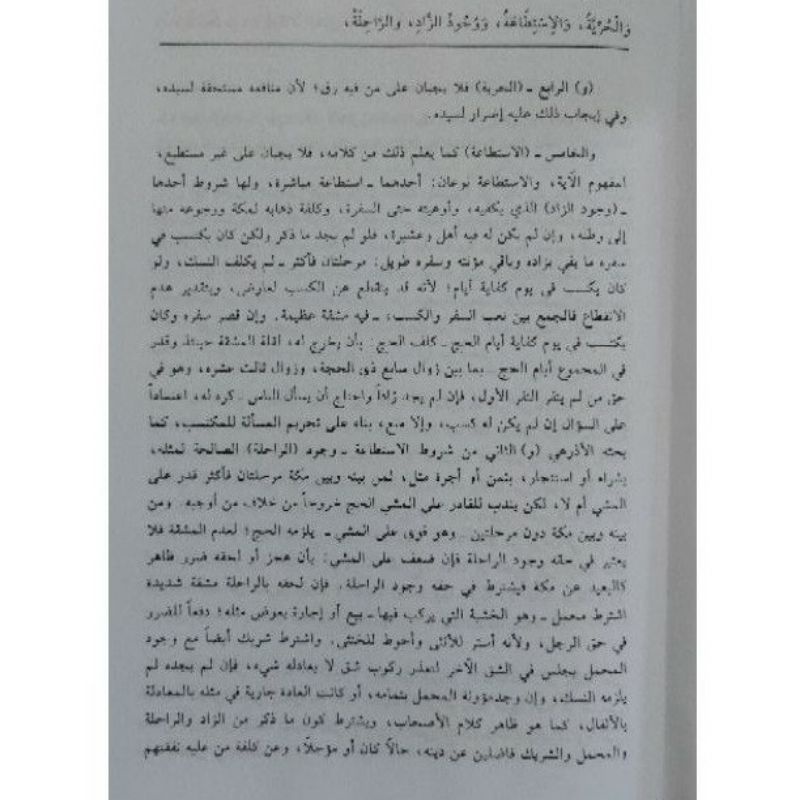 وَالْحُرِّيَّةُ، وَالِاسْتِطَاعَةُ، وَوُجُودُ الزَّادِ، وَالرَّاحِلَةِ،
(و) الرابع ـ (الحرية) فلا يجبان على من فيه رق؛ لأن منافعه مستحقة لسيده،
وفي إيجاب ذلك عليه إضرار لسيده.
والخامس ـ (الاستطاعة) كما يعلم ذلك من كلامه، فلا يجبان على غير مستطيع،
لمفهوم الآية، والاستطاعة نوعان: أحدهما ـ استطاعة مباشرة، ولها شروط أحدها
ـ (وجود الزاد) الذي يكفيه، وأوعيته حتى السفرة، وكلفة ذهابه لمكة ورجوعه منها
إلى وطنه، وإن لم يكن له فيه أهل وعشيرة، فلو لم يجد ما ذكر ولكن كان يكتسب في
سفره ما يفي بزاده وباقي مؤنته وسفره طويل: مرحلتان فأكثر ـ لم يكلف النسك، ولو
كان يكسب في يوم كفاية أيام؛ لأنه قد ينقطع عن الكسب لعارض، وبتقدير عدم
الانقطاع فالجمع بين تعب السفر والكسب، ـ فيه مشقة عظيمة. وإن قصر سفره وكان
يكتسب في يوم كفاية أيام الحج ـ كلف الحج: بأن يخرج له، لقلة المشقة حينئذ وقدر
في المجموع أيام الحج ـ بما بين زوال سابع ذي الحجة، وزوال ثالث عشره، وهو في
حق من لم ينفر النفر الأول، فإن لم يجد زاداً واحتاج أن يسأل الناس ـ كره له، اعتماداً
على السؤال إن لم يكن له كسب، وإلا منع، بناء على تحريم المسألة للمكتسب، كما
بحثه الأذرعي (و) الثاني من شروط الاستطاعة ـ وجود (الراحلة) الصالحة لمثله،
بشراء أو استئجار، بثمن أو أجرة مثل، لمن بينه وبين مكة مرحلتان فأكثر قدر على
المشي أم لا، لكن يندب للقادر على المشي الحج خروجاً من خلاف من أوجبه. ومن
بينه وبين مكة دون مرحلتين ـ وهو قوي على المشي ـ يلزمه الحج؛ لعدم المشقة فلا
يعتبر في حقه وجود الراحلة فإن ضعف على المشي: بأن عجز أو لحقه ضرر ظاهر
كالبعيد عن مكة فيشترط في حقه وجود الراحلة. فإن لحقه بالراحلة مشقة شديدة
اشترط محمل ـ وهو الخشبة التي يركب فيها ـ بيع أو إجارة بعوض مثله؛ دفعاً للضرر
في حق الرجل، ولأنه أستر للأنثى وأحوط للخنثى. واشترط شريك أيضاً مع وجود
المحمل يجلس في الشق الآخر لتعذر ركوب شق لا يعادله شيء، فإن لم يجده لم
يلزمه النسك، وإن وجد مؤونة المحمل بتمامه، أو كانت العادة جارية في مثله بالمعادلة
بالأثقال، كما هو ظاهر كلام الأصحاب، ويشترط كون ما ذكر من الزاد والراحلة
والمحمل والشريك فاضلين عن دينه، حالاً كان أو مؤجلاً، وعن كلفة من عليه نفقتهم